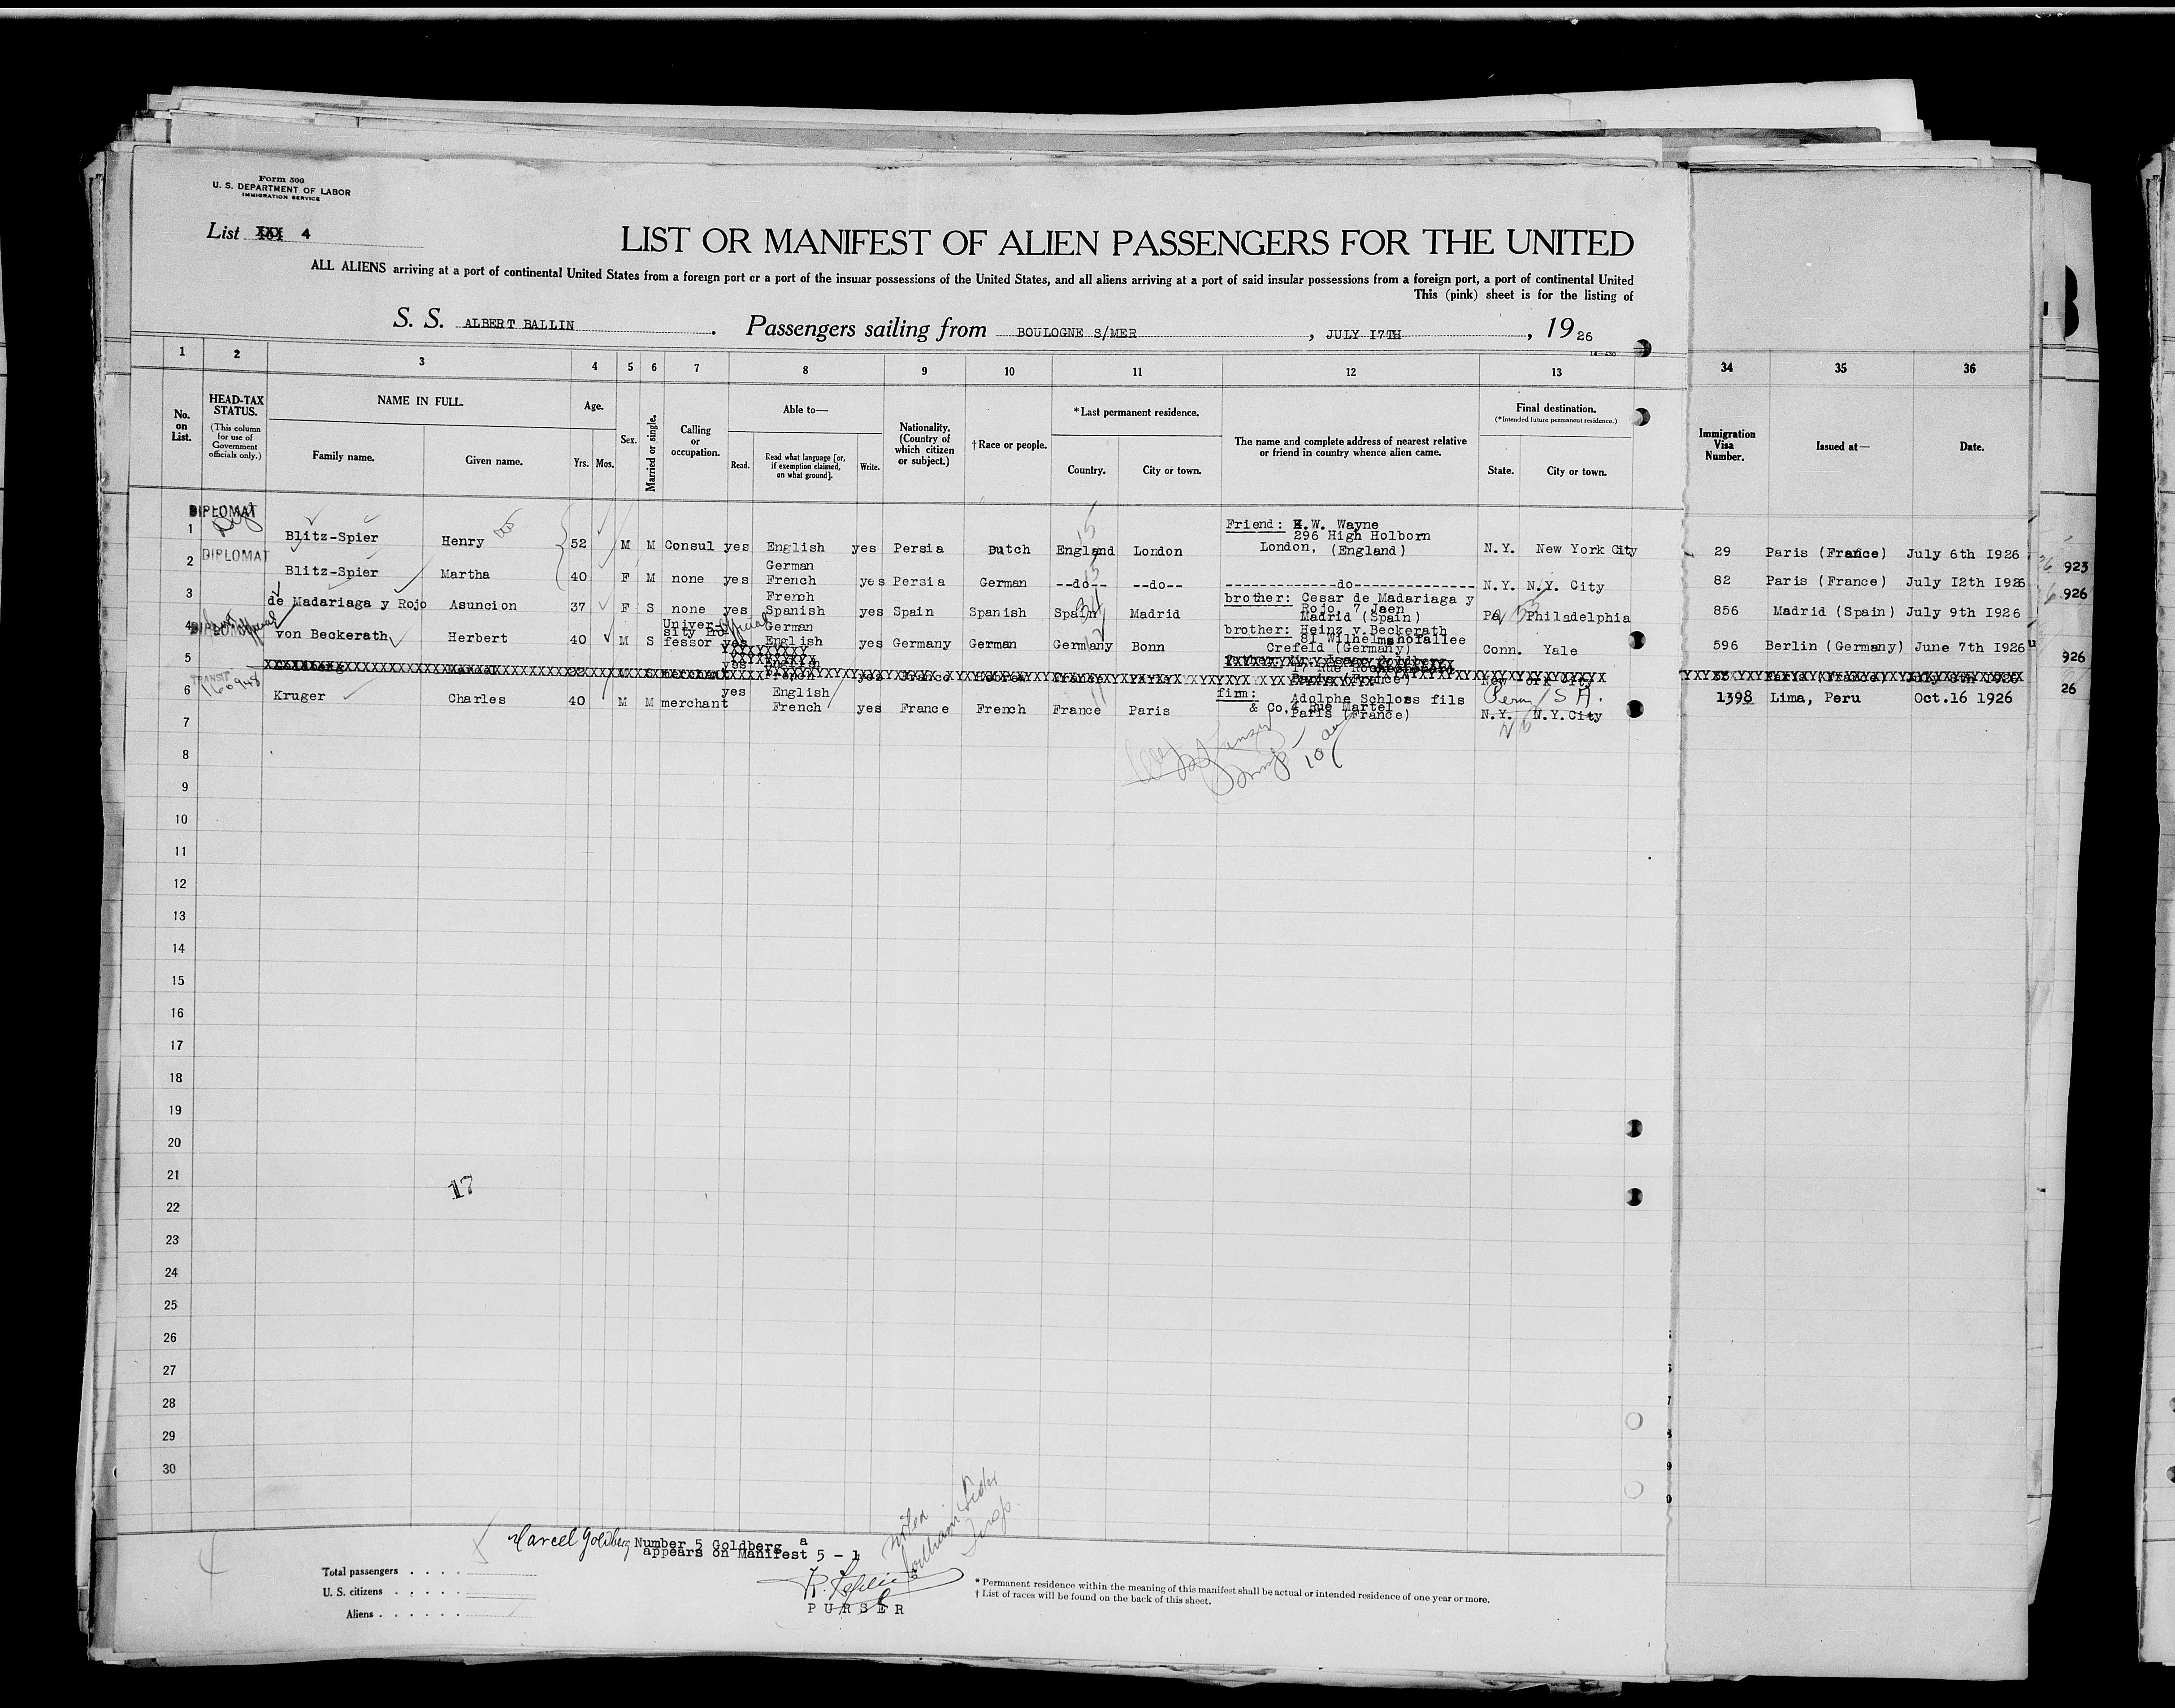 Form 500
U. S. DEPARTMENT OF LABOR
IMMIGRATION SERVICE
List 4
LIST OR MANIFEST OF ALIEN PASSENGERS FOR THE UNITED
ALL ALIENS arriving at a port of continental United States from a foreign port or a port of the insular possessions of the United States, and all aliens arriving at a port of said insular possessions from a foreign port, a port of continental United
This (pink) sheet is for the listing of
S. S. ALBERT BALLIN . Passengers sailing from BOULOGNE S/MER , JULY I7TH , 19 26
1 2 3 4 5 6 7 8 9 10 11 12 13 34 35 36
No. on List.
HEAD-TAX STATUS.
(This column for use of Government officials only.)
NAME IN FULL.
Family name. Given name.
Age.
Yrs. Mos.
Sex.
Married or single.
Calling or occupation.
Able to—
Read. Read what language [or, if exemption claimed, on what ground]. Write.
Nationality. (Country of which citizen or subject.)
† Race or people.
* Last permanent residence.
Country. City or town.
The name and complete address of nearest relative or friend in country whence alien came.
Final destination.
(*Intended future permanent residence.)
State. City or town.
Immigration Visa Number.
Issued at—
Date.
DIPLOMAT
1 Blitz-Spier Henry 52 M M Consul yes English yes Persia Dutch England London Friend: W. Wayne 296 High Holborn London, (England) N.Y. New York City 29 Paris (France) July 6th I926
DIPLOMAT
2 Blitz-Spier Martha 40 F M none yes German French yes Persia German --do-- --do-- do N.Y. N.Y. City 82 Paris (France) July I2th I926
3 de Madariaga y Rojo Asuncion 37 F S none yes French Spanish yes Spain Spanish Spain Madrid brother: Cesar de Madariaga y Rojo, 7 Jaen Madrid (Spain) Pa Philadelphia 856 Madrid (Spain) July 9th I926
4 von Beckerath Herbert 40 M S Univer-sity Pro-fessor yes German English yes Germany German Germany Bonn brother: Heinz v.Beckerath 81 Wilhelmshofallee Crefeld (Germany) Conn. Yale 596 Berlin (Germany) June 7th I926
5
TRANSIT
6 Kruger Charles 40 M M merchant yes English French yes France French France Paris firm: Adolphe Schloss fils & Co, 4 Rue Martel Paris (France) Peru S A. N.Y. N.Y.City 1398 Lima, Peru Oct.16 1926
7
8
9
10
11
12
13
14
15
16
17
18
19
20
21
22
23
24
25
26
27
28
29
30
923
926
926
26
17
Marcel Goldberg Number 5 Goldberg
appears on Manifest 5 - 1
Total passengers
U. S. citizens
Aliens
PURSER
* Permanent residence within the meaning of this manifest shall be actual or intended residence of one year or more.
† List of races will be found on the back of this sheet.